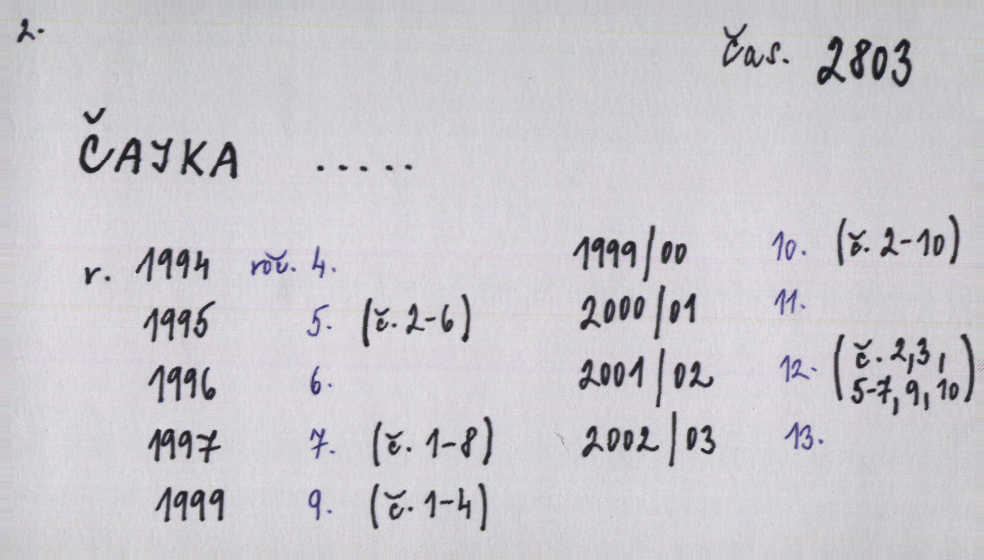 2.
Čas. 2803
ČAJKA .....
r. 1994 roč. 4.
1995 5. (č. 2-6)
1996 6.
1997 7. (č. 1-8)
1999 9. (č. 1-4)
1999/00 10. (č. 2-10)
2000/01 11.
2001/02 12. (č. 2,3,
5-7, 9, 10)
2002/03 13.